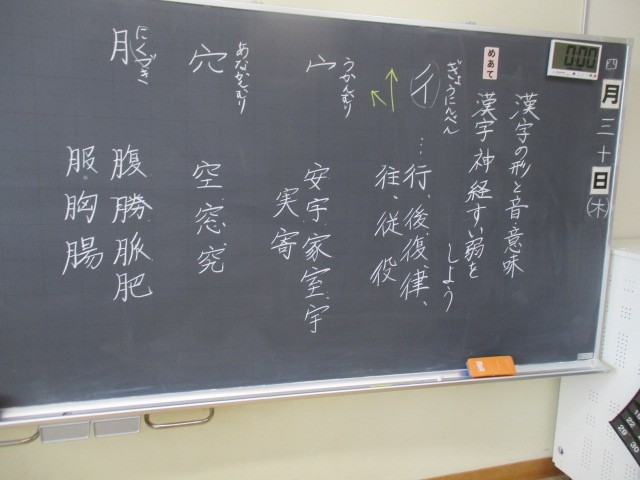 四月三十日(木)
0:00
漢字の形と音・意味
めあて
漢字神経すい弱を
しよう
ぎょうにんべん
彳…行、後、復、律、
往、従、役
うかんむり
宀 安、字、家、室、宇
実、寄
あなかんむり
穴 空、窓、究
にくづき
月 腹、勝、脈、肥
服、胸、腸